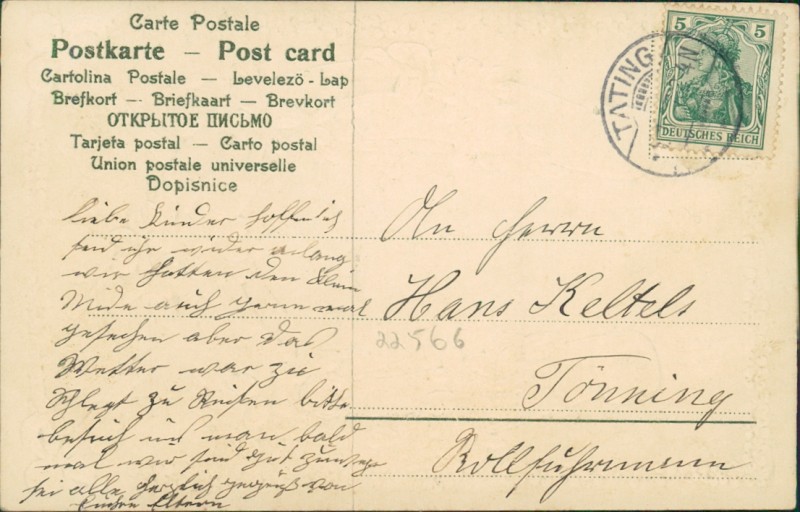 Carte Postale
Postkarte — Post card
Cartolina Postale — Levelező-Lap
Brefkort — Briefkaart — Brevkort
ОТКРЫТОЕ ПИСЬМО
Tarjeta postal — Carto postal
Union postale universelle
Dopisnice
5 5
DEUTSCHES REICH
TATING
4N
liebe Kinder hoffenlich
seid ihr wider
wir hatten den klein
auch gern mal
gesehen aber das
Wetter war zu
schlegt zu Reisen bitte
besuch uns man bald
mal wir sind gut zuwege
sei alle herzlich gegrüß von
Euchen Eltern
An Herrn
Hans Keltels
Tönning
Rollfuhrmann
22566